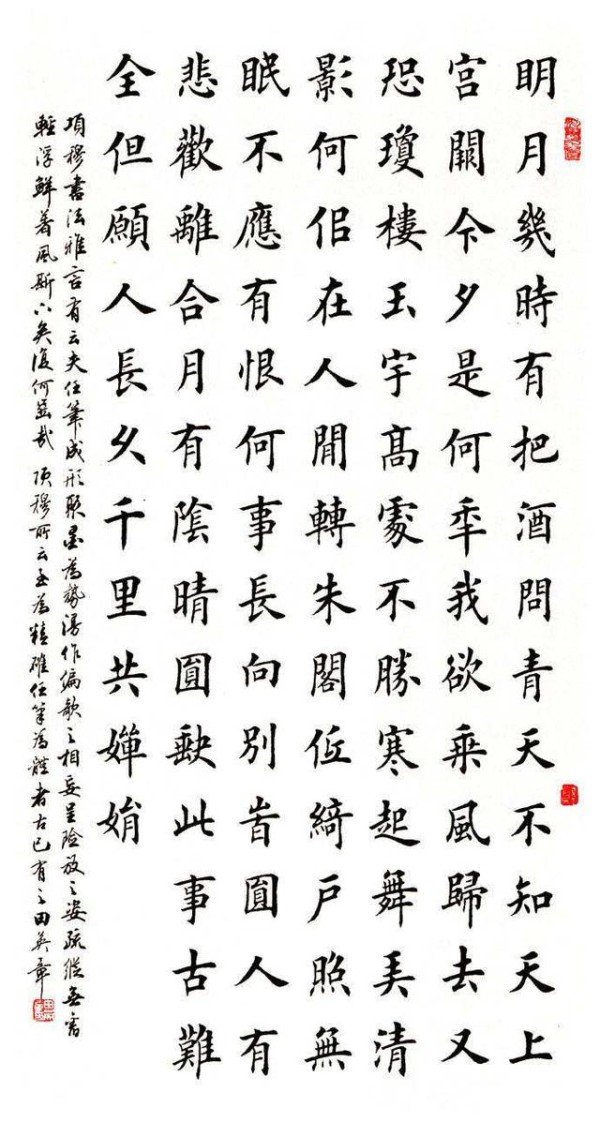 明月幾時有把酒問青天不知天上
宮闕今夕是何秊我欲乘風歸去又
恐瓊樓玉宇高處不勝寒起舞弄清
影何佀在人間轉朱閣低綺戶照無
眠不應有恨何事長向別旹圓人有
悲歡離合月有陰晴圓缺此事古難
全但願人長久千里共嬋娟
項穆書法雅言有云夫任筆成形聚墨為勢漫作偏欹之相妄呈險放之姿疏縱無
輕浮鮮著風斯下矣復何哉 項穆所云至為精確任筆為體者古已有之田英章